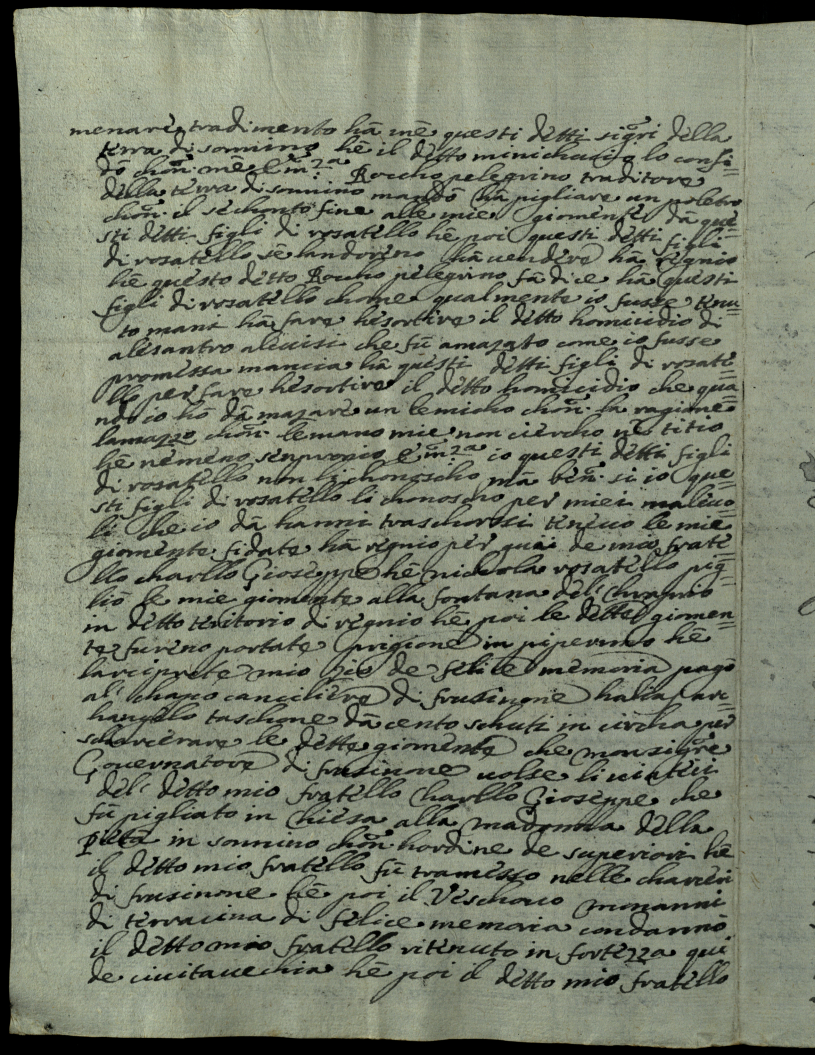 menare tradimento hà mè questi detti sig.ri della
terra di sonnino hè il detto minichuccio lo confi=
dò chon mè E.m.za Roccho pelegrino traditore
della terra di sonnino mandò hà pigliare un poletro
chon il sechonto fine alle mie giomente dà que=
sti detti figli di rosatello hè poi questi detti figli
di rosatello sè landorino hà vendere hà regnio
hè questo detto Roccho pelegrino fà dice hà questi
figli di rosatello chome qualmente io fusse tenu=
to mani hà fare hesortire il detto homicidio di
alesantro alivisi che fù amazato come io fusse
promessa mancia hà questi detti figli di rosate=
llo per fare hesortire il detto homicidio che qua=
ndo io hò dà mazare un lemicho chon la ragione
lamazzo chon lemano mie non ciercho nè titio
hè nemeno senpronio E.m.za io questi detti figli
di rosatello non li chonoscho mà ben si io que=
sti figli di rosatello li chonoscho per miei malivo=
li che io dà hanni traschorsi tenevo le mie
giomente fidate hà regnio per quai de mio frate=
llo charllo Gioseppe hè nichola rosatello pig=
liò le mie giomente alla fontana del chranio
in detto teritorio di regnio hè poi le dette giomen=
te furino portate prigione in piperno hè
larciprete mio zio de felice memoria pagò
al chapo canciliere di frusinone halias arc=
hangelo taschone dà cento schuti in circha per
scharcierare le dette giomente che monsig.re
Governatore di frusinone volse li vinteri
del detto mio fratello Charllo Gioseppe che
fù pigliato in chiesa alla madonna della
Pietà in sonnino chon hordine de superiori hè
il detto mio fratello fù tramesso nelle charcieri
di frusinone hè poi il Veschovo monanni
di terracina di felice memoria condannò
il detto mio fratello ritenuto in fortezza qui
de civitavechia hè poi il detto mio fratello